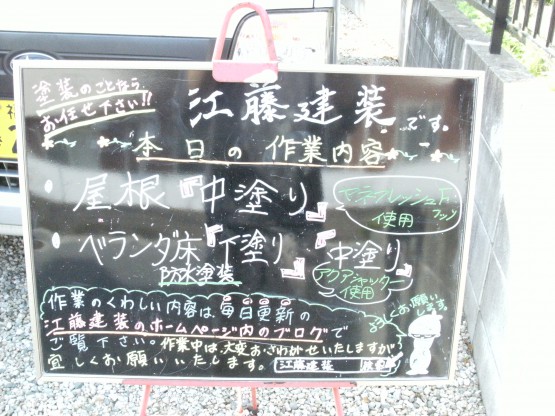 塗装のことなら
お任せ下さい!!
江藤建装です。
本日の作業内容
・屋根『中塗り』
使用
・ベランダ床『下塗り』『中塗り』
防水塗装
アクアシャッター
使用
作業のくわしい内容は、毎日更新の
江藤建装のホームページ内のブログで
ご覧下さい。作業中は、大変おさわがせいたしますが
宜しくお願いいたします。江藤建装
よろしくお願いします。